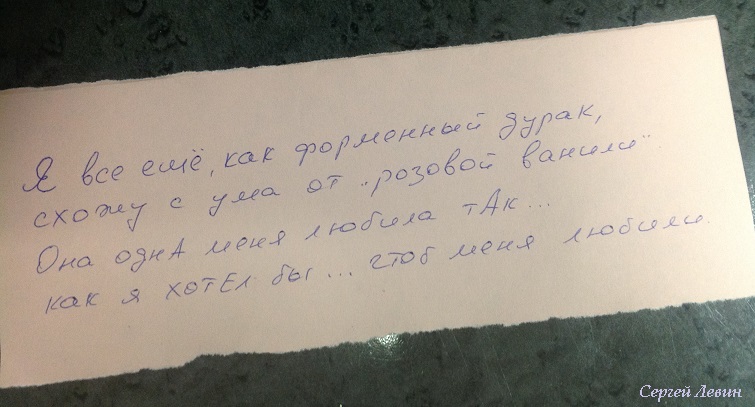 Я все ещё, как форменный дурак,
схожу с ума от "розовой ванили".
Она однА меня любила тАк...
как я хотЕл бы... чтоб меня любили.
Сергей Левин